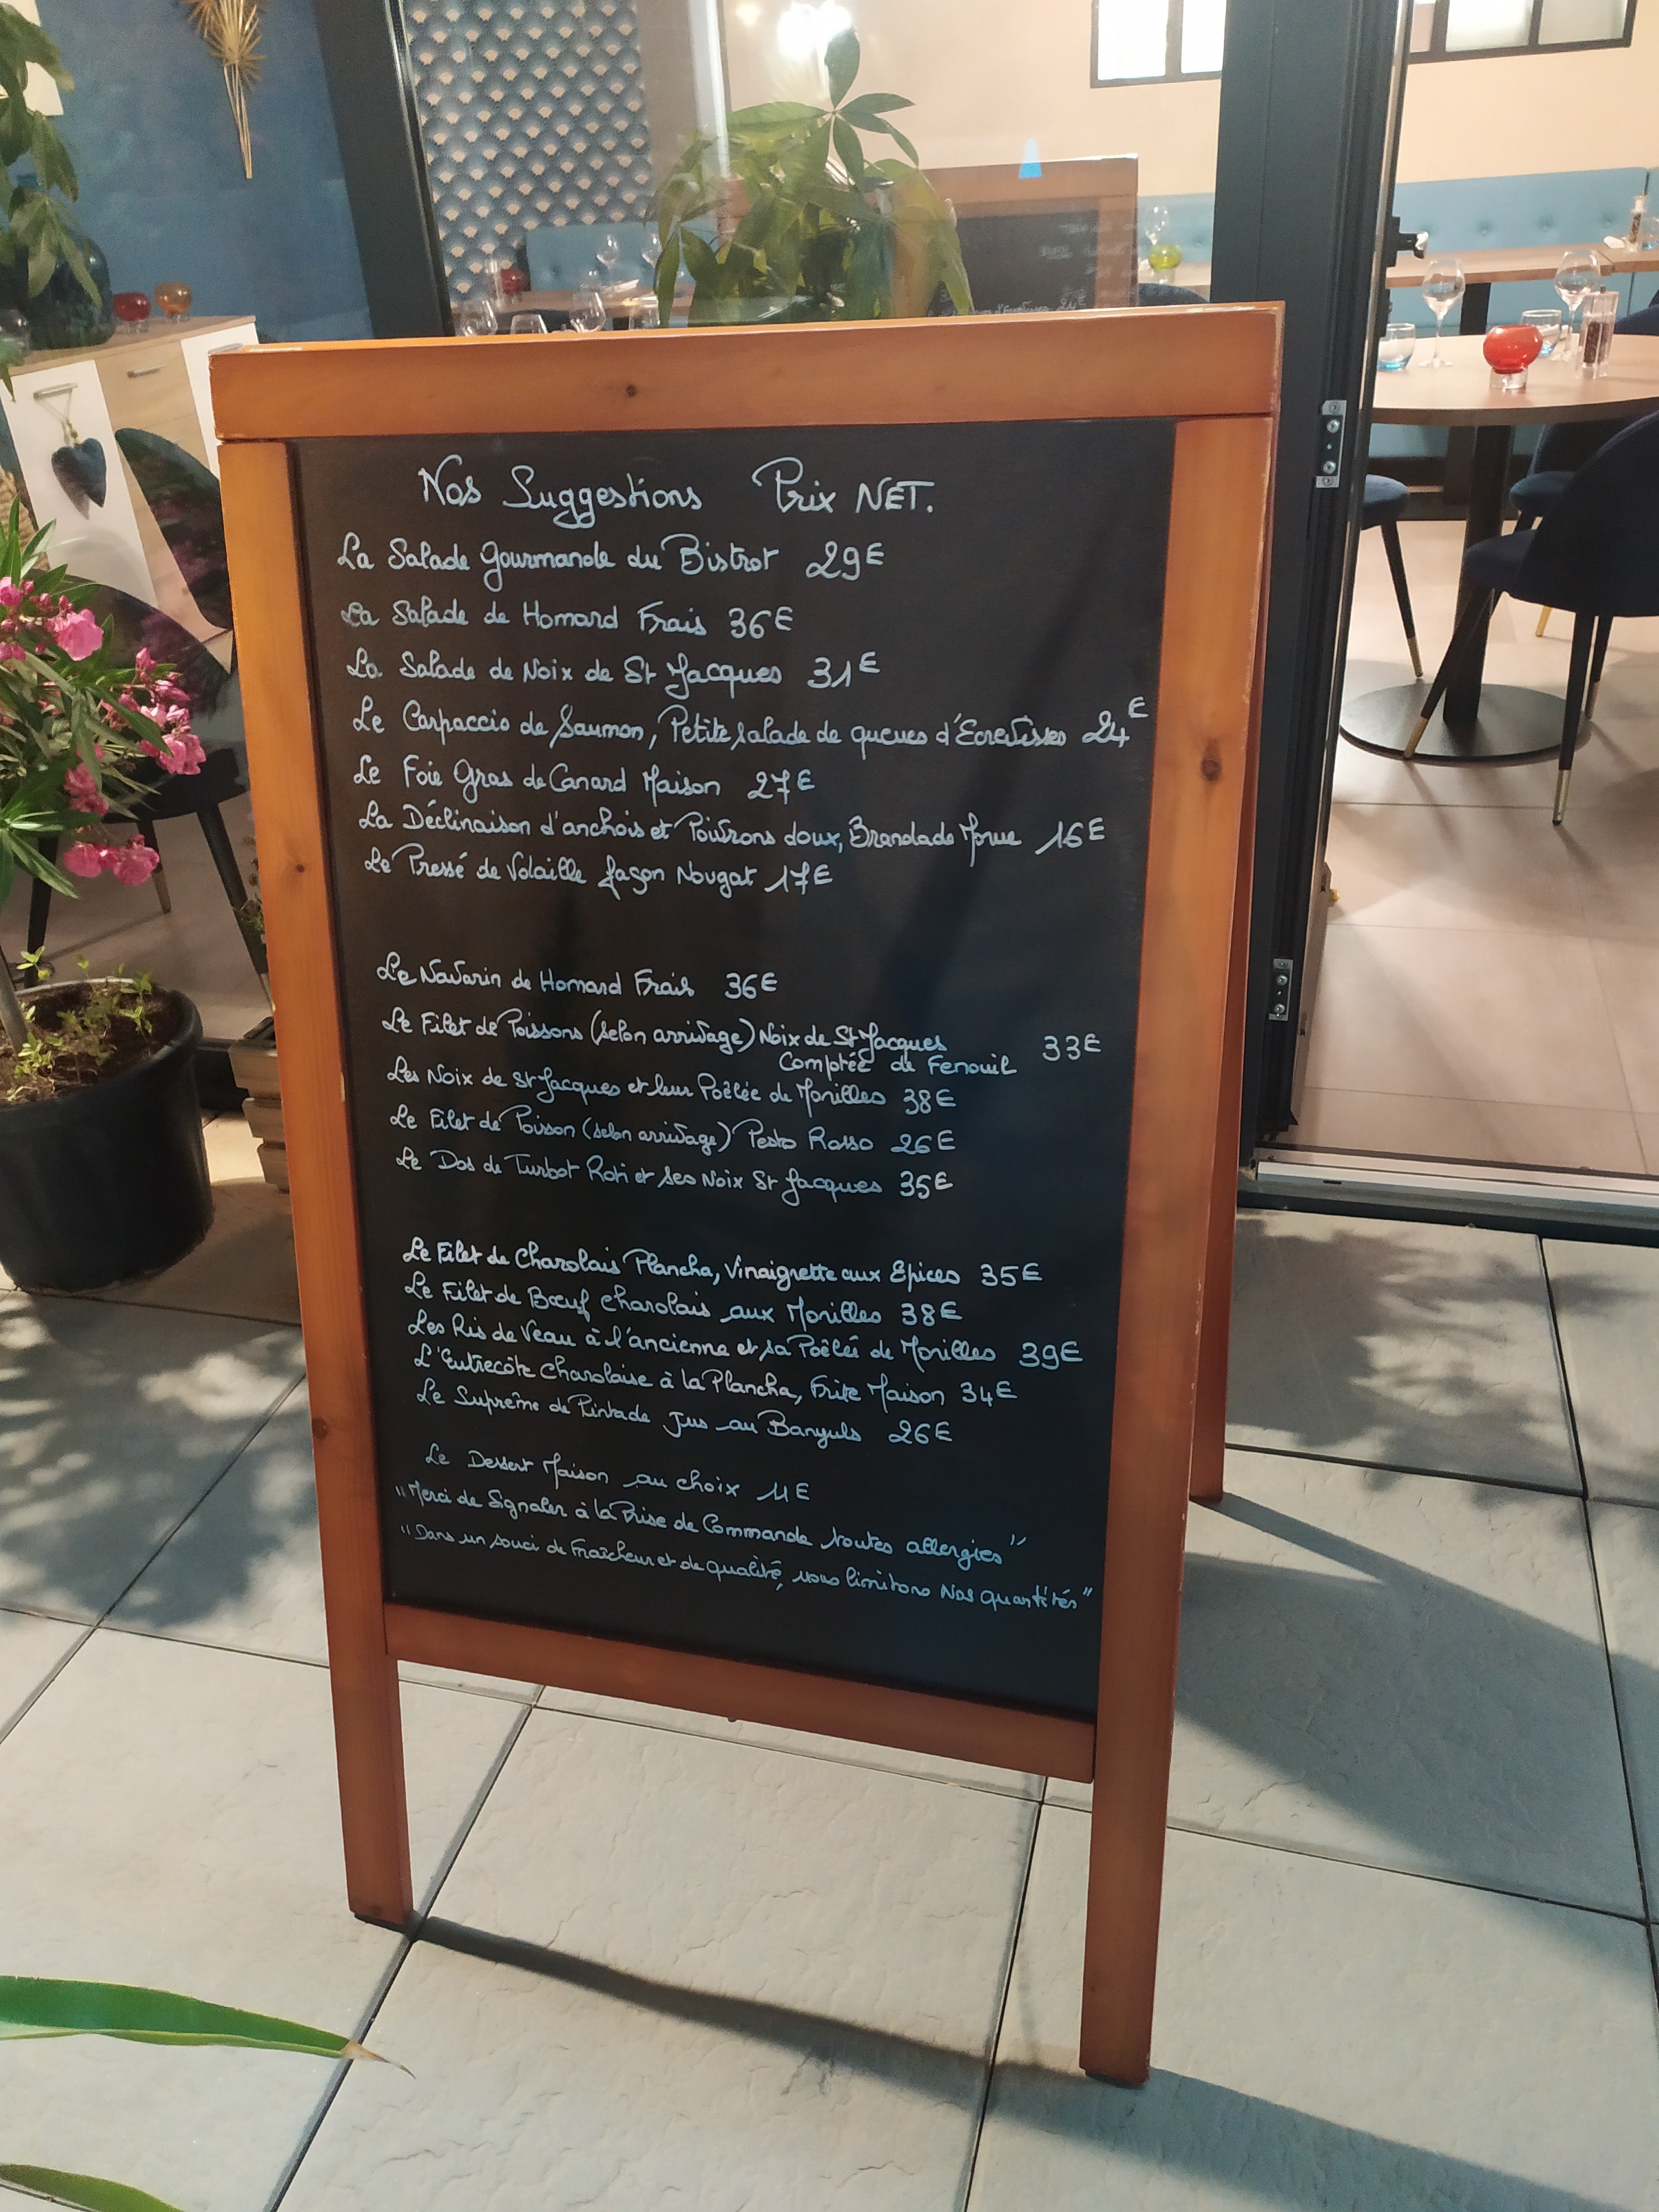 Nos Suggestions Prix NET.
La Salade Gourmande du Bistrot 29€
La Salade de Homard Frais 36€
La Salade de Noix de St Jacques 31€
Le Carpaccio de Saumon, Petite salade de queues d'Ecrevisses 24€
Le Foie Gras de Canard Maison 27€
La Déclinaison d'anchois et Poivrons doux, Brandade Morue 16€
Le Pressé de Volaille façon Nougat 17€
Le Navarin de Homard Frais 36€
Le Filet de Poissons (selon arrivage) Noix de St Jacques 33€
Comptée de Fenouil
Les Noix de St Jacques et leur Poêlée de Morilles 38€
Le Filet de Poisson (selon arrivage) Pesto Rosso 26€
Le Dos de Turbot Roti et ses Noix St Jacques 35€
Le Filet de Charolais Plancha, Vinaigrette aux Epices 35€
Le Filet de Bœuf Charolais aux Morilles 38€
Les Ris de Veau à l'ancienne et sa Poêlée de Morilles 39€
L'Entrecôte Charolaise à la Plancha, Frite Maison 34€
Le Suprême de Pintade Jus au Banyuls 26€
Le Dessert Maison au choix 11€
"Merci de Signaler à la Prise de Commande toutes allergies"
"Dans un souci de Fraîcheur et de qualité, nous limitons Nos quantités"